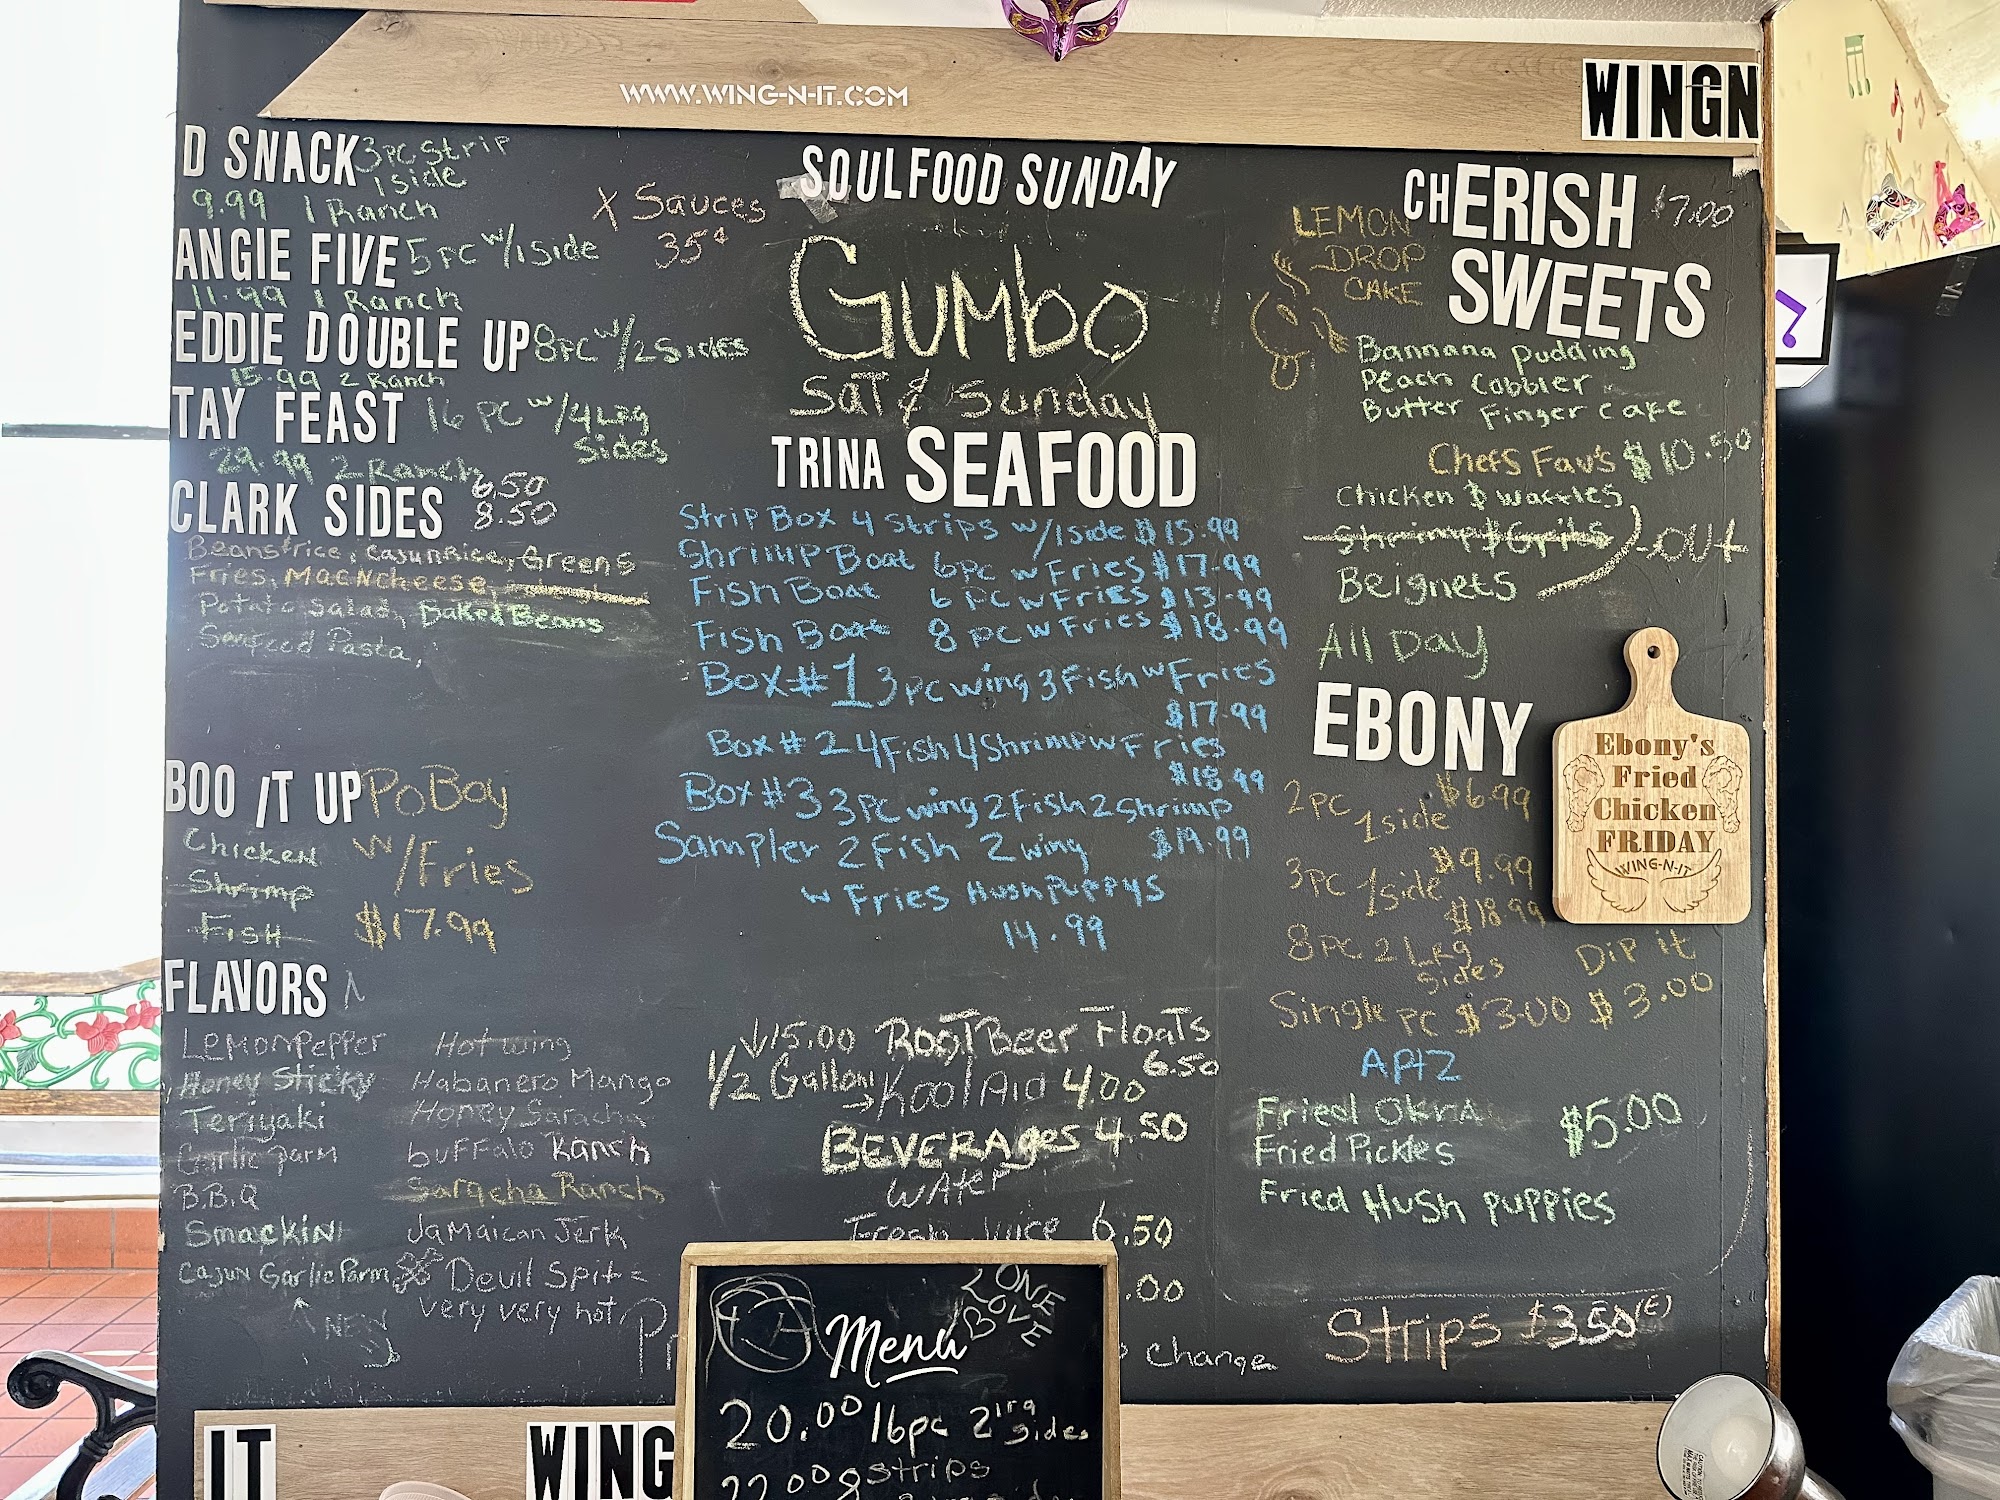 WWW.WING-N-IT.COM
WINGN
D SNACK 3PC Strip
1 side
9.99 1 Ranch
X Sauces
35¢
ANGIE FIVE 5PC w/1side
11.99 1 Ranch
EDDIE DOUBLE UP 8PC w/2Sides
15.99 2 Ranch
TAY FEAST 16 PC w/4 Lrg
Sides
29.99 2 Ranch
CLARK SIDES 6.50
8.50
Beans & rice, CajunRice, Greens
Fries, MacNcheese,
Potato Salad, Baked Beans
Seafood Pasta,
BOO IT UP PoBoy
Chicken w/Fries
Shrimp
Fish $17.99
FLAVORS
LemonPepper Hot wing
Honey Sticky Habanero Mango
Teriyaki Honey Saracha
Garlic parm buffalo Ranch
B.B.Q Saracha Ranch
Smackin Jamaican Jerk
Cajun Garlic Parm Devil Spit =
very very hot,
NEW
SOULFOOD SUNDAY
Gumbo
SAT & Sunday
TRINA SEAFOOD
Strip Box 4 Strips w/1side $15.99
Shrimp Boat 6pc w Fries $17.99
Fish Boat 6 pc w Fries $13.99
Fish Boat 8 pc w Fries $18.99
Box #1 3pc wing 3Fish w Fries
$17.99
Box #2 4Fish 4Shrimp w Fries
$18.99
Box #3 3pc wing 2Fish 2Shrimp
$19.99
Sampler 2 Fish 2 wing
w Fries Hushpuppys
14.99
15.00 RootBeer Floats
6.50
1/2 Gallon
KoolAid 4.00
BEVERAGES 4.50
WATER
Fresh Juice 6.50
.00
Change
CHERISH $7.00
SWEETS
LEMON
DROP
CAKE
Bannana pudding
Peach Cobbler
Butter Finger cake
Chefs Fav's $10.50
Chicken & Waffles
Shrimp & Grits
Beignets
OUT
All Day
EBONY
2PC $6.99
1side
3PC $9.99
1side
8PC 2 Lrg $18.99
Sides
Dip it
Single PC $3.00 $3.00
Ebony's
Fried
Chicken
FRIDAY
WING-N-IT
APTZ
Fried Okra $5.00
Fried Pickles
Fried Hush puppies
Strips $3.50 (E)
IT
WING
ONE
LOVE
Menu
20.00 16pc 2 lrg
sides
22.00 8 strips